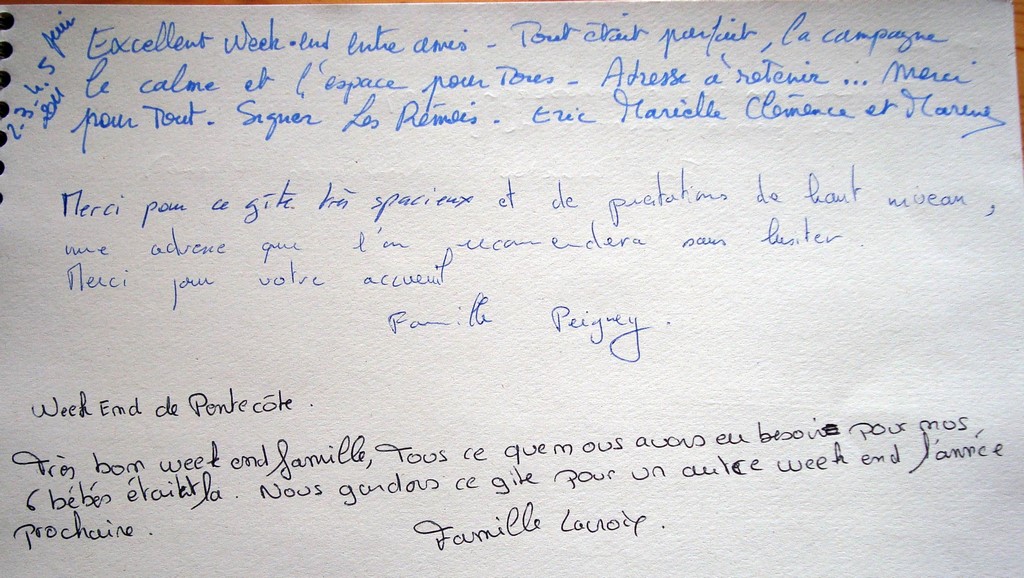 2-3-4-5 juin
Excellent Week-end entre amis - Tout était parfait, la campagne
le calme et l'espace pour Tous - Adresse à retenir ... Merci
pour Tout. Signer Les Rémois. Eric Marielle Clémence et
Merci pour ce gîte très spacieux et de prestations de haut niveau,
une adresse que l'on recommendera sans hesiter.
Merci pour votre accueil
Famille Peigney.
Week End de Pentecôte.
Très bon week end famille, Tous ce que nous avons eu besoin pour nos,
6 bébés était la. Nous gardons ce gite pour un autre week end l'année
prochaine.
Famille Lacroix.